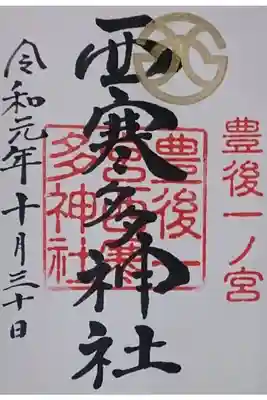 豊後一ノ宮
西寒多神社
豊後一
宮西寒
多神社
令和元年十月三十日